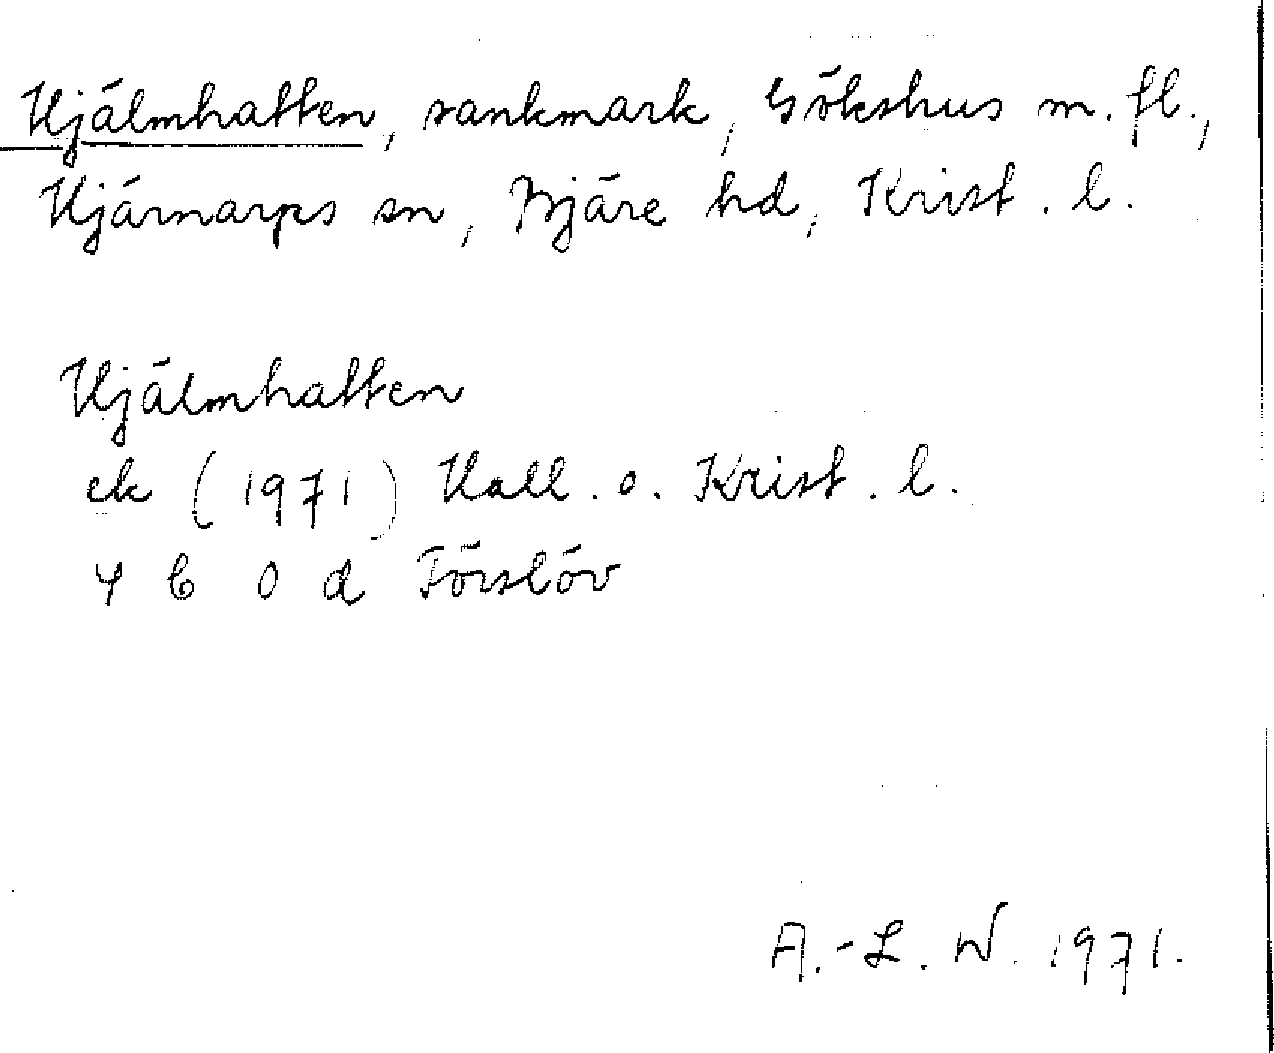 Hjälmhatten, sankmark, Gökshus m. fl.,
Hjärnarps sn, Bjäre hd, Krist. l.
Hjälmhatten
ek (1971) Hall. o. Krist. l.
4 C 0 d Förslöv
A.-L. W. 1971.